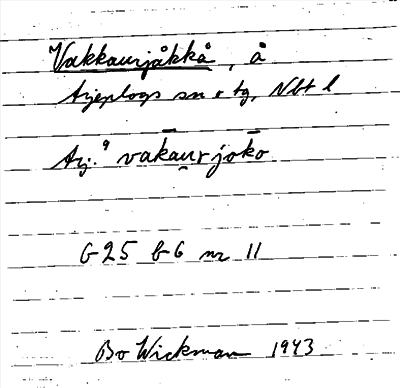 Vakkaurjåkkå, å
Arjeplogs sn o tg, Nbt l
Arj. 9 vakau̯rjoko
G 25 b 6 nr 11
Bo Wickman 1943